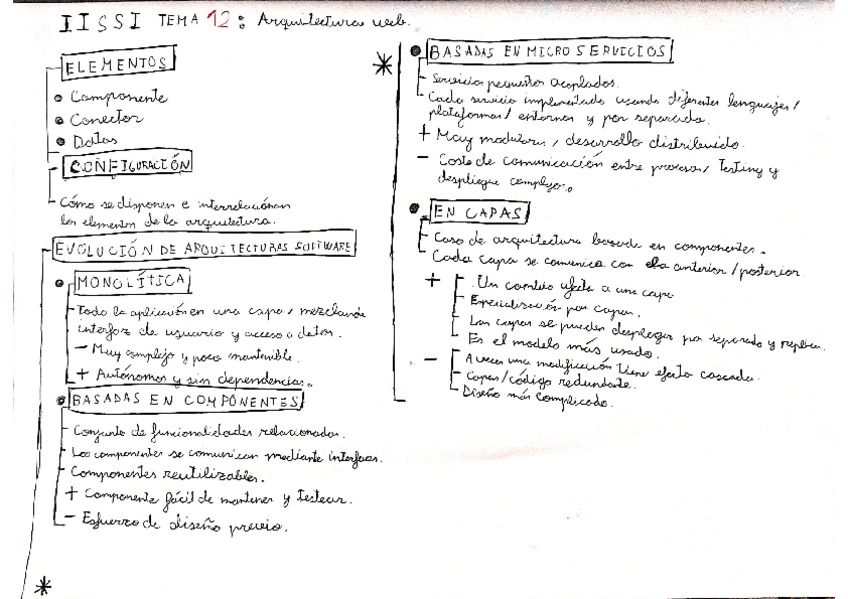 IISSI TEMA 12: Arquitectura web.
ELEMENTOS
Componente
Conector
Datos
CONFIGURACIÓN
Cómo se disponen e interrelacionan
los elementos de la arquitectura.
EVOLUCIÓN DE ARQUITECTURAS SOFTWARE
MONOLÍTICA
Toda la aplicación en una capa, mezclando
interfaz de usuario y acceso a datos.
- Muy complejo y poco mantenible.
+ Autónomos y sin dependencias.
BASADAS EN COMPONENTES
Conjunto de funcionalidades relacionadas.
Los componentes se comunican mediante interfaces.
Componentes reutilizables.
+ Componente fácil de mantener y testear.
- Esfuerzo de diseño previo.
*
*
BASADAS EN MICROSERVICIOS
Servicios pequeños acoplados.
Cada servicio implementado usando diferentes lenguajes/
plataformas/entornos y por separado.
+ Muy modular, desarrollo distribuido.
- Coste de comunicación entre procesos, Testing y
despliegue complejo.
EN CAPAS
Caso de arquitectura basada en componentes.
Cada capa se comunica con la anterior/posterior
+ Un cambio afecta a una capa
Especialización por capas.
Las capas se pueden desplegar por separado y replicar.
Es el modelo más usado.
- A veces una modificación tiene efecto cascada.
Capas/código redundante.
Diseño más complicado.